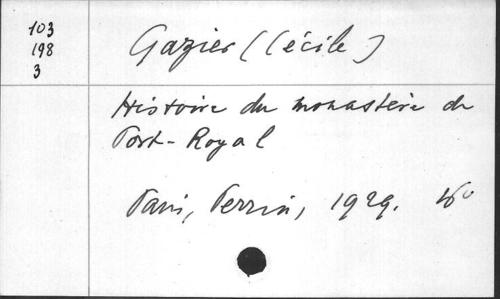 103
198
3
Gazier (Cécile)
Histoire du monastère de
Port-Royal
Paris, Perrin, 1929.